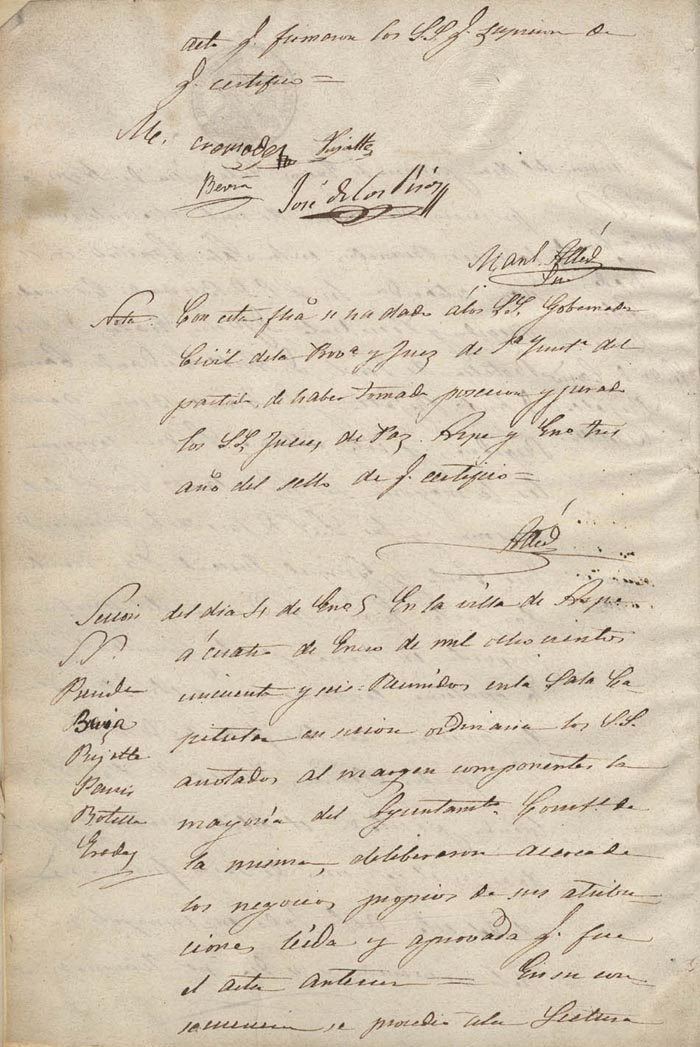 acta q. firmaron los SS. q. supieron de
q. certifico =
José de los
Manl. Alled
Nota. Con esta fhã se ha dado a los SS. Gobernador
Civil de la Prova. y Juez de 1a. Insta. del
partido, de haber tomado posecion y jurado
los SS. Jueces de Paz. Aspe y Eno. tres
año del sello de q. certifico =
Alled
Sesion del dia 4 de Eno. En la villa de Aspe
SS. á cuatro de Enero de mil ochocientos
Preside cincuenta y seis: Reunidos en la Sala Ca
pitular en sesion ordinaria los SS.
anotados al margen componentes la
Botella mayoria del Ayuntamto. Constl. de
la misma, deliberaron acerca de
los negocios propios de sus atribu
ciones leida y aprovada q. fue
el acta anterior = En su con
secuencia se procedió a la Lectura